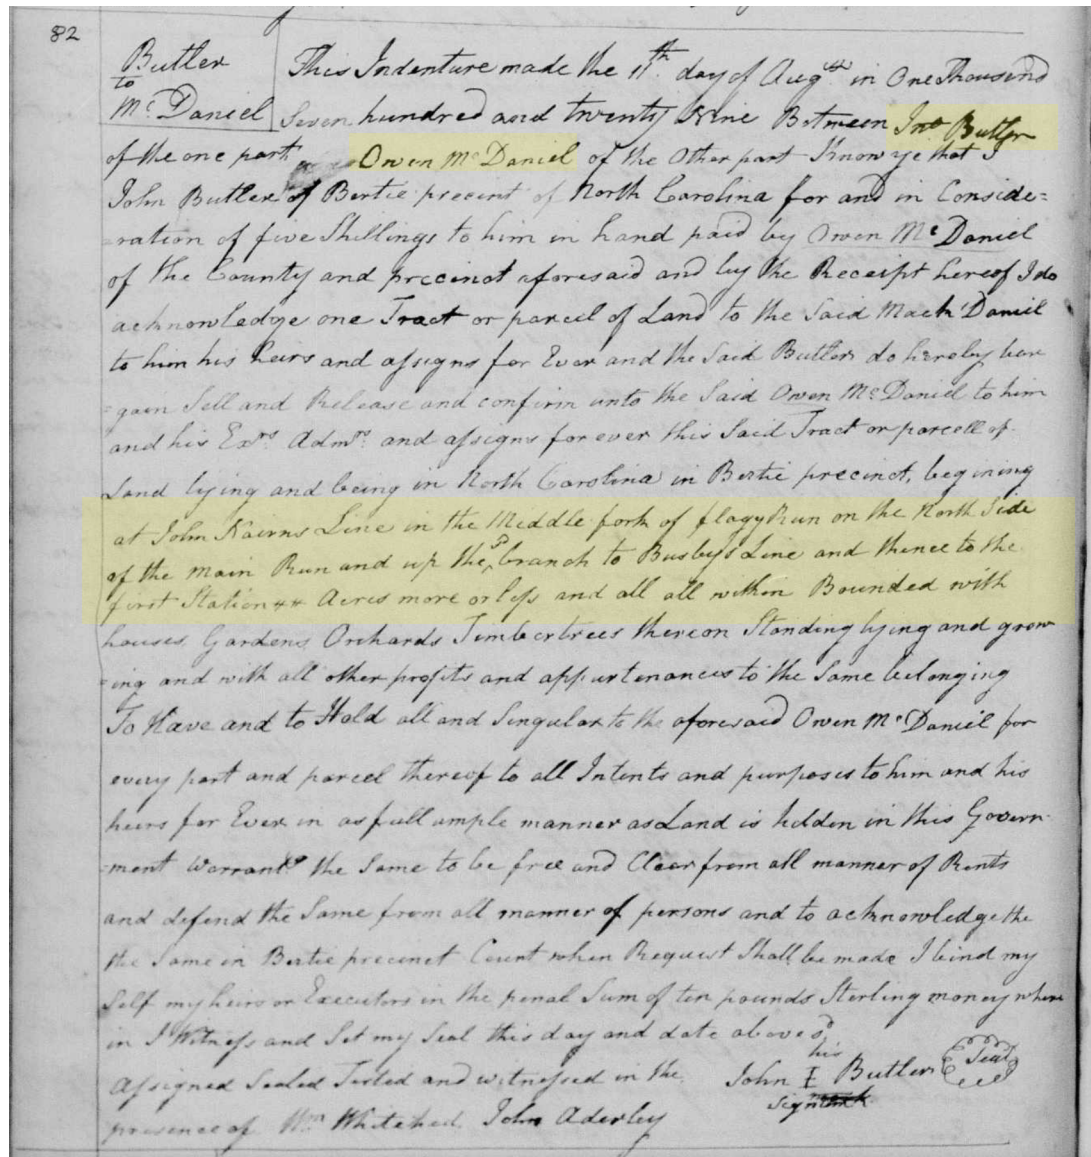 82
Butler
to
Mc Daniel
This Indenture made the 11th day of Augst in One Thousand
Seven hundred and twenty Nine Between Jno Butler
of the one part Owen Mc Daniel of the Other part Know ye that I
John Butler of Bertie precinct of North Carolina for and in Conside=
=ration of five Shillings to him in hand paid by Owen Mc Daniel
of the County and precinct aforesaid and by the Receipt hereof I do
acknowledge one Tract or parcel of Land to the Said Mack Daniel
to him his heirs and assigns for Ever and the Said Butler do hereby bar
=gain Sell and Release and confirm unto the Said Owen Mc Daniel to him
and his Exrs Admrs and assigns for ever this Said Tract or parcell of
Land lying and being in North Carolina in Bertie precinct, begining
at John Kairns Line in the Middle fork of flagy Run on the North Side
of the main Run and up the sd branch to Busby's Line and thence to the
first Station ## Acres more or less and all all within Bounded with
houses, Gardens, Orchards Timbertrees thereon Standing lying and grow
=ing and with all other profits and appurtenances to the Same belonging
To Have and to Hold all and Singular to the aforesaid Owen Mc Daniel for
every part and parcel thereof to all Intents and purposes to him and his
heirs for Ever in as full ample manner as Land is holden in this Govern-
=ment warrant the Same to be free and Clear from all manner of Rents
and defend the Same from all manner of persons and to acknowledge the
the Same in Bertie precinct Court when Request Shall be made I bind my
Self my heirs or Executors in the penal Sum of ten pounds Sterling money where
in I Witness and Set my Seal this day and date above sd
his
Assigned Sealed Tested and witnessed in the John I Butler Seal
sign mark
presence of Wm Whitehed, John Aderley